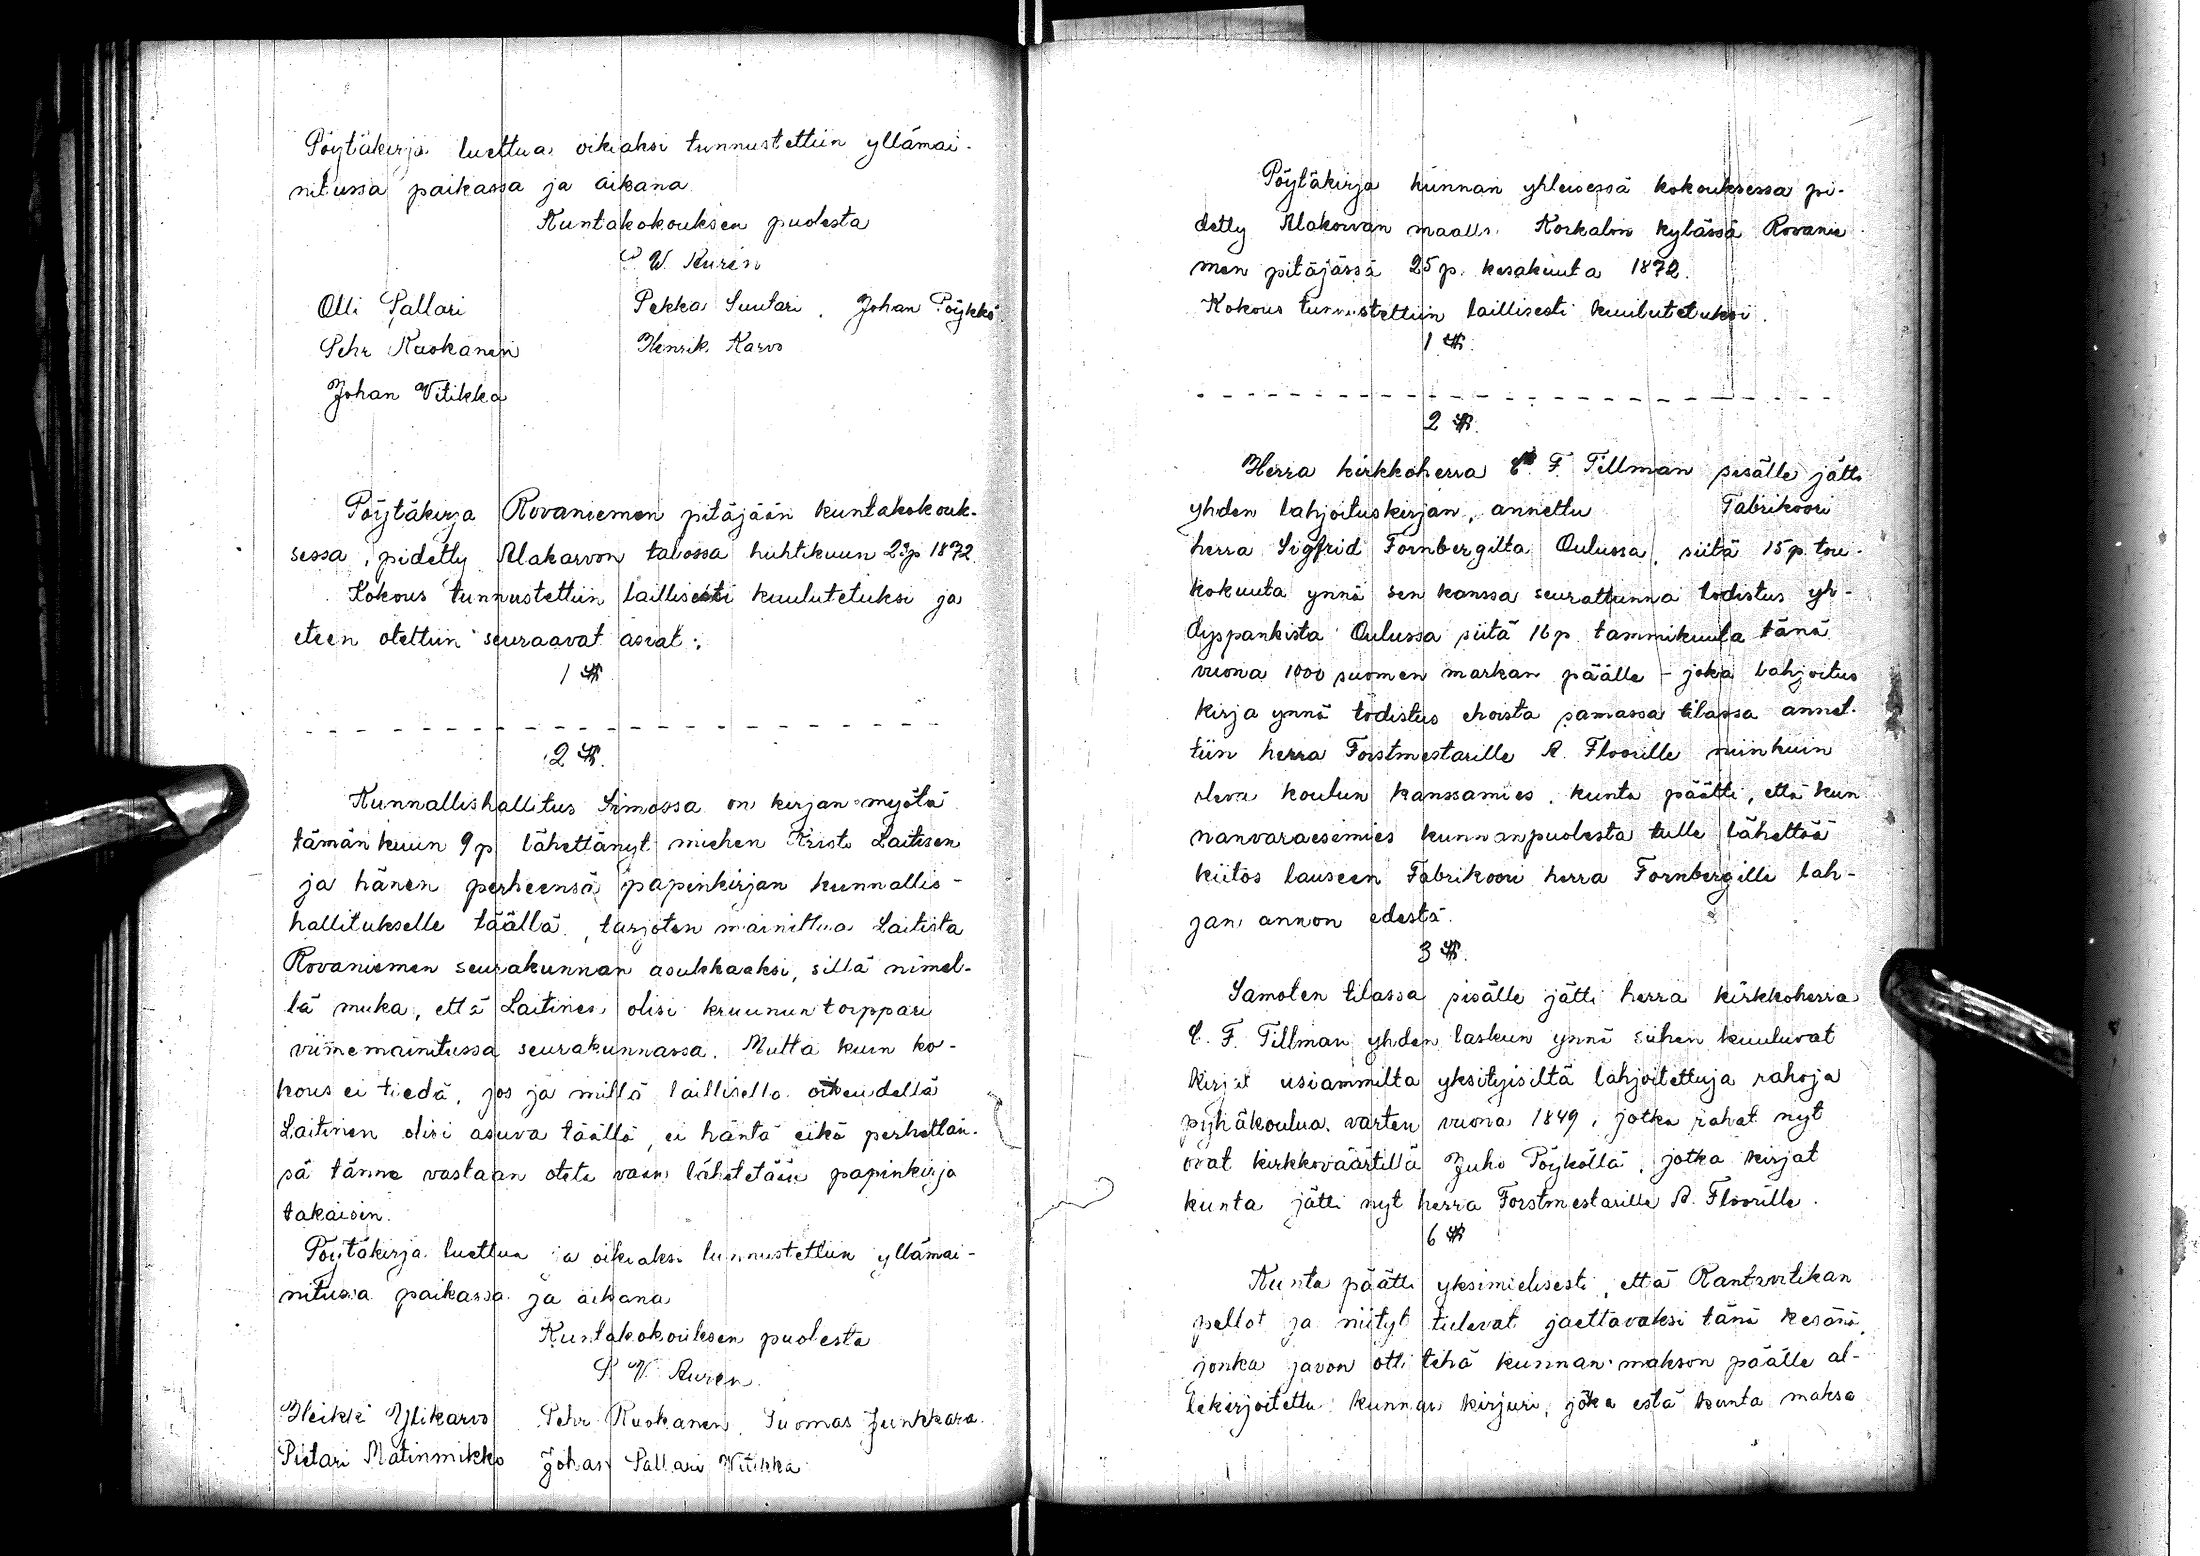 Pöytäkirja luettua oikiaksi tunnustettiin yllämai-
nitussa paikassa ja aikana
Kuntakokouksen puolesta
S W. Kurén
Olli Pallari Pekka Suutari. Johan Pöykkö
Pehr Ruokanen Henrik Karvo
Johan Vitikka
Pöytäkirja Rovaniemen pitäjään kuntakokouk-
sessa, pidetty Alakarvon talossa huhtikuun 1872
Kokous tunnustettiin laillisesti kuulutetuksi ja
eteen otettiin seuraavat asiat:
1 §
2 §.
Kunnallishallitus Simossa on kirjan myötä
tämän kuun 9 p lähettänyt miehen Kristo Laitisen
ja hänen perheensä papinkirjan kunnallis-
hallitukselle täällä, tarjoten mainittua Laitista
Rovaniemen seurakunnan asukkaaksi, sillä nimel-
lä muka, että Laitinen olisi kruunun torppari
viimemainitussa seurakunnassa. Mutta kuin ko-
kous ei tiedä, jos ja millä laillisella oikeudella
Laitinen olisi asuva täällä, ei häntä eikä perhettän-
sä tänne vastaan oteta vaan lähetetään papinkirja
takaisin.
Pöytäkirja luettua ja oikiaksi tunnustettiin yllämai-
nitussa paikassa ja aikana
Kuntakokouksen puolesta
S W. Kurén.
Heikki Ylikarvo Pehr Ruokanen. Tuomas Junkkara.
Pietari Matinmikko Johan Pallari Vitikka
Pöytäkirja kunnan yhteisessä kokouksessa pi-
detty Alakorvan maalla Korkalon kylässä Rovanie
men pitäjässä 25 p. kesäkuuta 1872.
Kokous tunnustettiin laillisesti kuulutetuksi.
1 §.
2 §.
Herra kirkkoherra F. Tillman sisälle jätti
yhden lahjoituskirjan, annettu Fabrikoori
herra Sigfrid Fornbergilta Oulussa, siitä 15 p. tou-
kokuuta ynnä sen kanssa seurattunna todistus yh-
dyspankista Oulussa siitä 16 p. tammikuuta tänä
vuona 1000 suomen markan päälle - joka lahjoitus
kirja ynnä todistus ehoista samassa tilassa annet-
tiin herra Forstmestarille A. Floorille niinkuin
oleva koulun kanssamies. kunta päätti, että kun
nanvaraesimies kunnanpuolesta tulle lähettää
kiitos lauseen Fabrikoori herra Fornbergille lah-
jan annon edestä.
3 §.
Samoten tilassa sisälle jätti herra kirkkoherra
C. F. Tillman yhden laskun ynnä siihen kuuluvat
kirjat usiammilta yksityisiltä lahjoitettuja rahoja
pyhäkoulua varten vuona 1849, jotka rahat nyt
ovat kirkkoväärtillä Juho Pöyköllä, jotka kirjat
kunta jätti nyt herra Forstmestarille A. Floorille.
6 §
Kunta päätti yksimielisesti, että Rantavitikan
pellot ja niityt tulevat jaettavaksi tänä kesänä,
jonka javon otti tehä kunnan makson päälle al-
lekirjoitettu kunnan kirjuri, joka estä kunta maksa